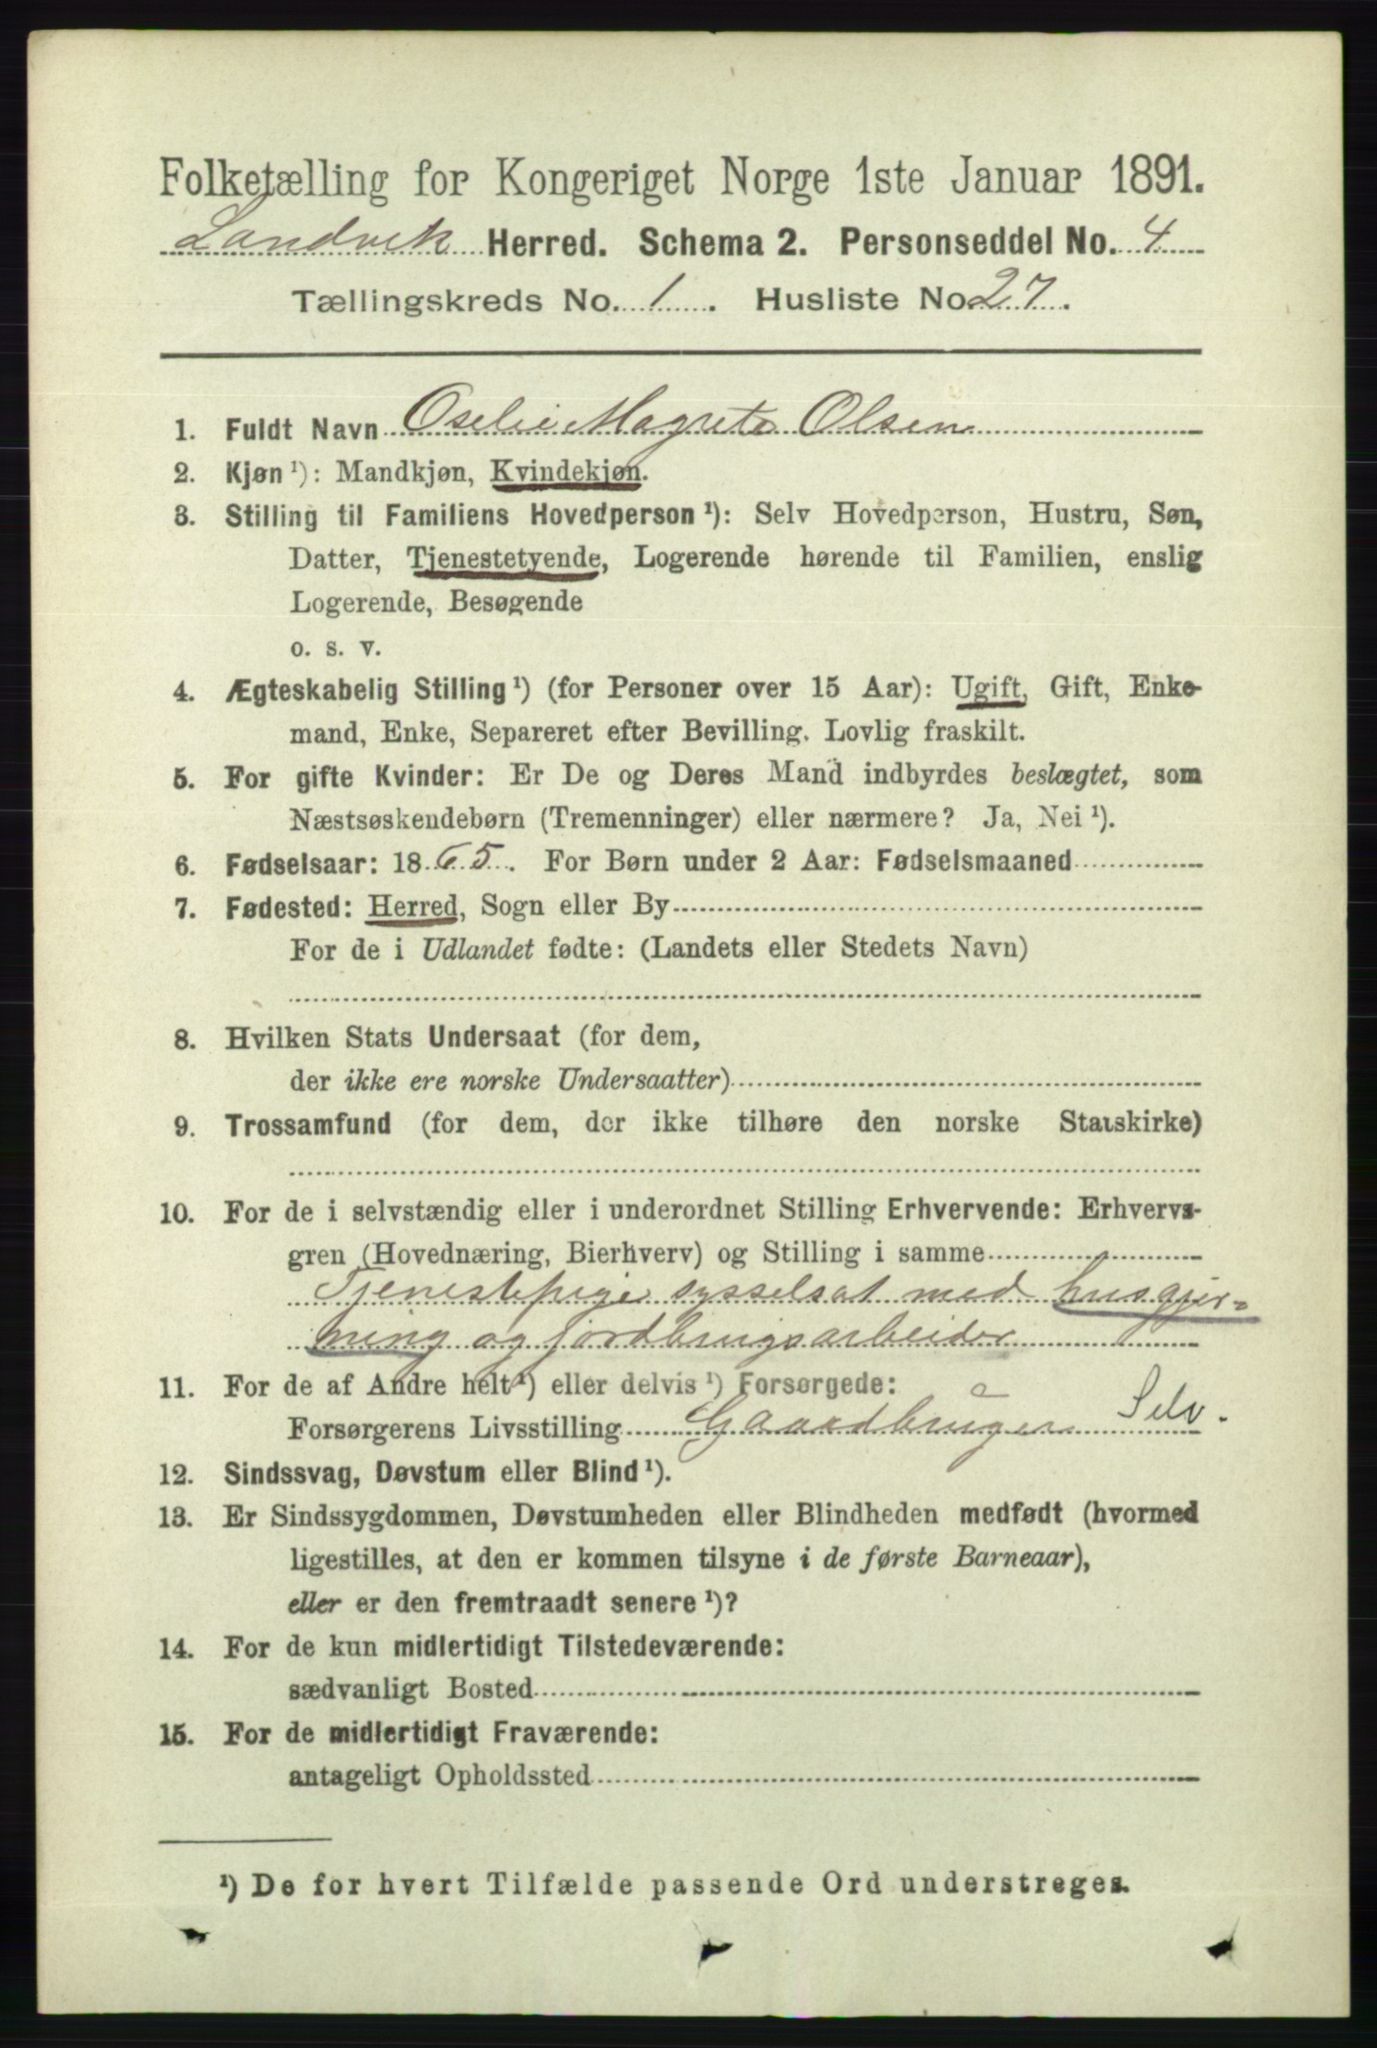 Folketælling for Kongeriget Norge 1ste Januar 1891.
Landvik Herred. Schema 2. Personseddel No. 4
Tællingskreds No. 1. Husliste No. 27.
1. Fuldt Navn Oselie Magrete Olsen
2. Kjøn ¹): Mandkjøn, Kvindekjøn.
3. Stilling til Familiens Hovedperson ¹): Selv Hovedperson, Hustru, Søn,
Datter, Tjenestetyende, Logerende hørende til Familien, enslig
Logerende, Besøgende
o. s. v.
4. Ægteskabelig Stilling ¹) (for Personer over 15 Aar): Ugift, Gift, Enke-
mand, Enke, Separeret efter Bevilling. Lovlig fraskilt.
5. For gifte Kvinder: Er De og Deres Mand indbyrdes beslægtet, som
Næstsøskendebørn (Tremenninger) eller nærmere? Ja, Nei ¹).
6. Fødselsaar: 1865. For Børn under 2 Aar: Fødselsmaaned
7. Fødested: Herred, Sogn eller By
For de i Udlandet fødte: (Landets eller Stedets Navn)
8. Hvilken Stats Undersaat (for dem,
der ikke ere norske Undersaatter)
9. Trossamfund (for dem, der ikke tilhøre den norske Statskirke)
10. For de i selvstændig eller i underordnet Stilling Erhvervende: Erhvervs-
gren (Hovednæring, Bierhverv) og Stilling i samme
Tjenestepige sysselsat med husgjer-
ning og jordbrugsarbeider
11. For de af Andre helt ¹) eller delvis ¹) Forsørgede:
Forsørgerens Livsstilling Gaardbruger Selv.
12. Sindssvag, Døvstum eller Blind ¹).
13. Er Sindssygdommen, Døvstumheden eller Blindheden medfødt (hvormed
ligestilles, at den er kommen tilsyne i de første Barneaar),
eller er den fremtraadt senere ¹)?
14. For de kun midlertidigt Tilstedeværende:
sædvanligt Bosted
15. For de midlertidigt Fraværende:
antageligt Opholdssted
¹) De for hvert Tilfælde passende Ord understreges.